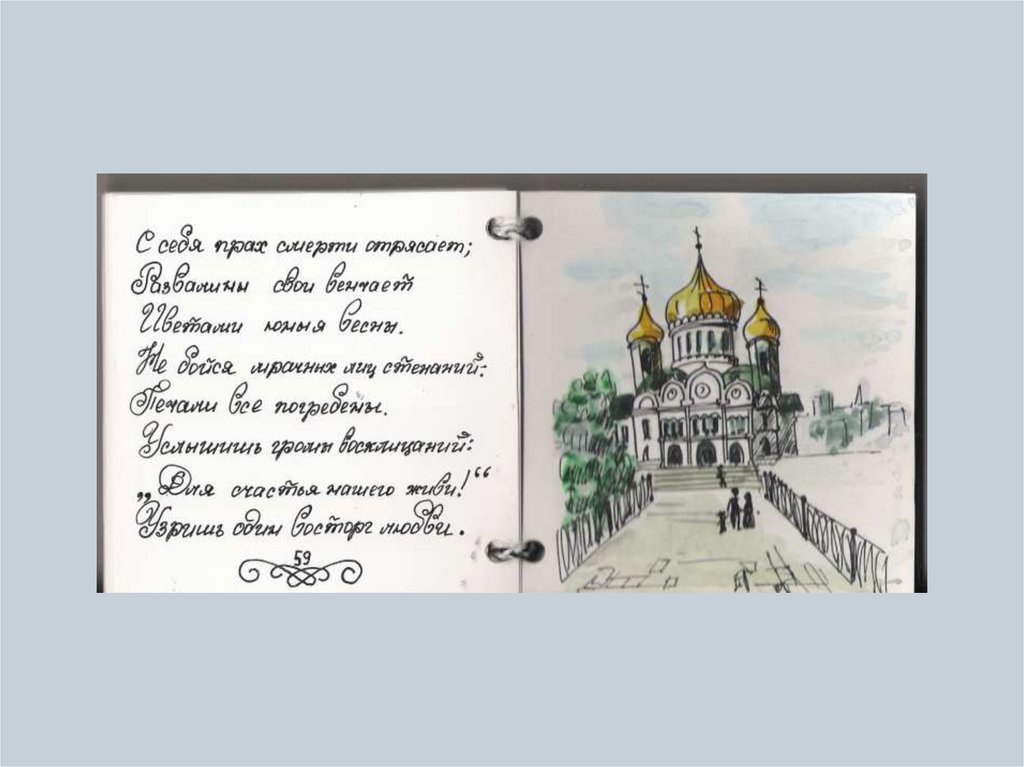 С себя прах смерти отрясает;
Развалины свои венчает
Цветами юныя весны.
Не бойся мрачных лиц стенаний:
Печали все погребены.
Услышишь громы восклицаний:
„Для счастья нашего живи!“
Узришь один восторг любви.
59